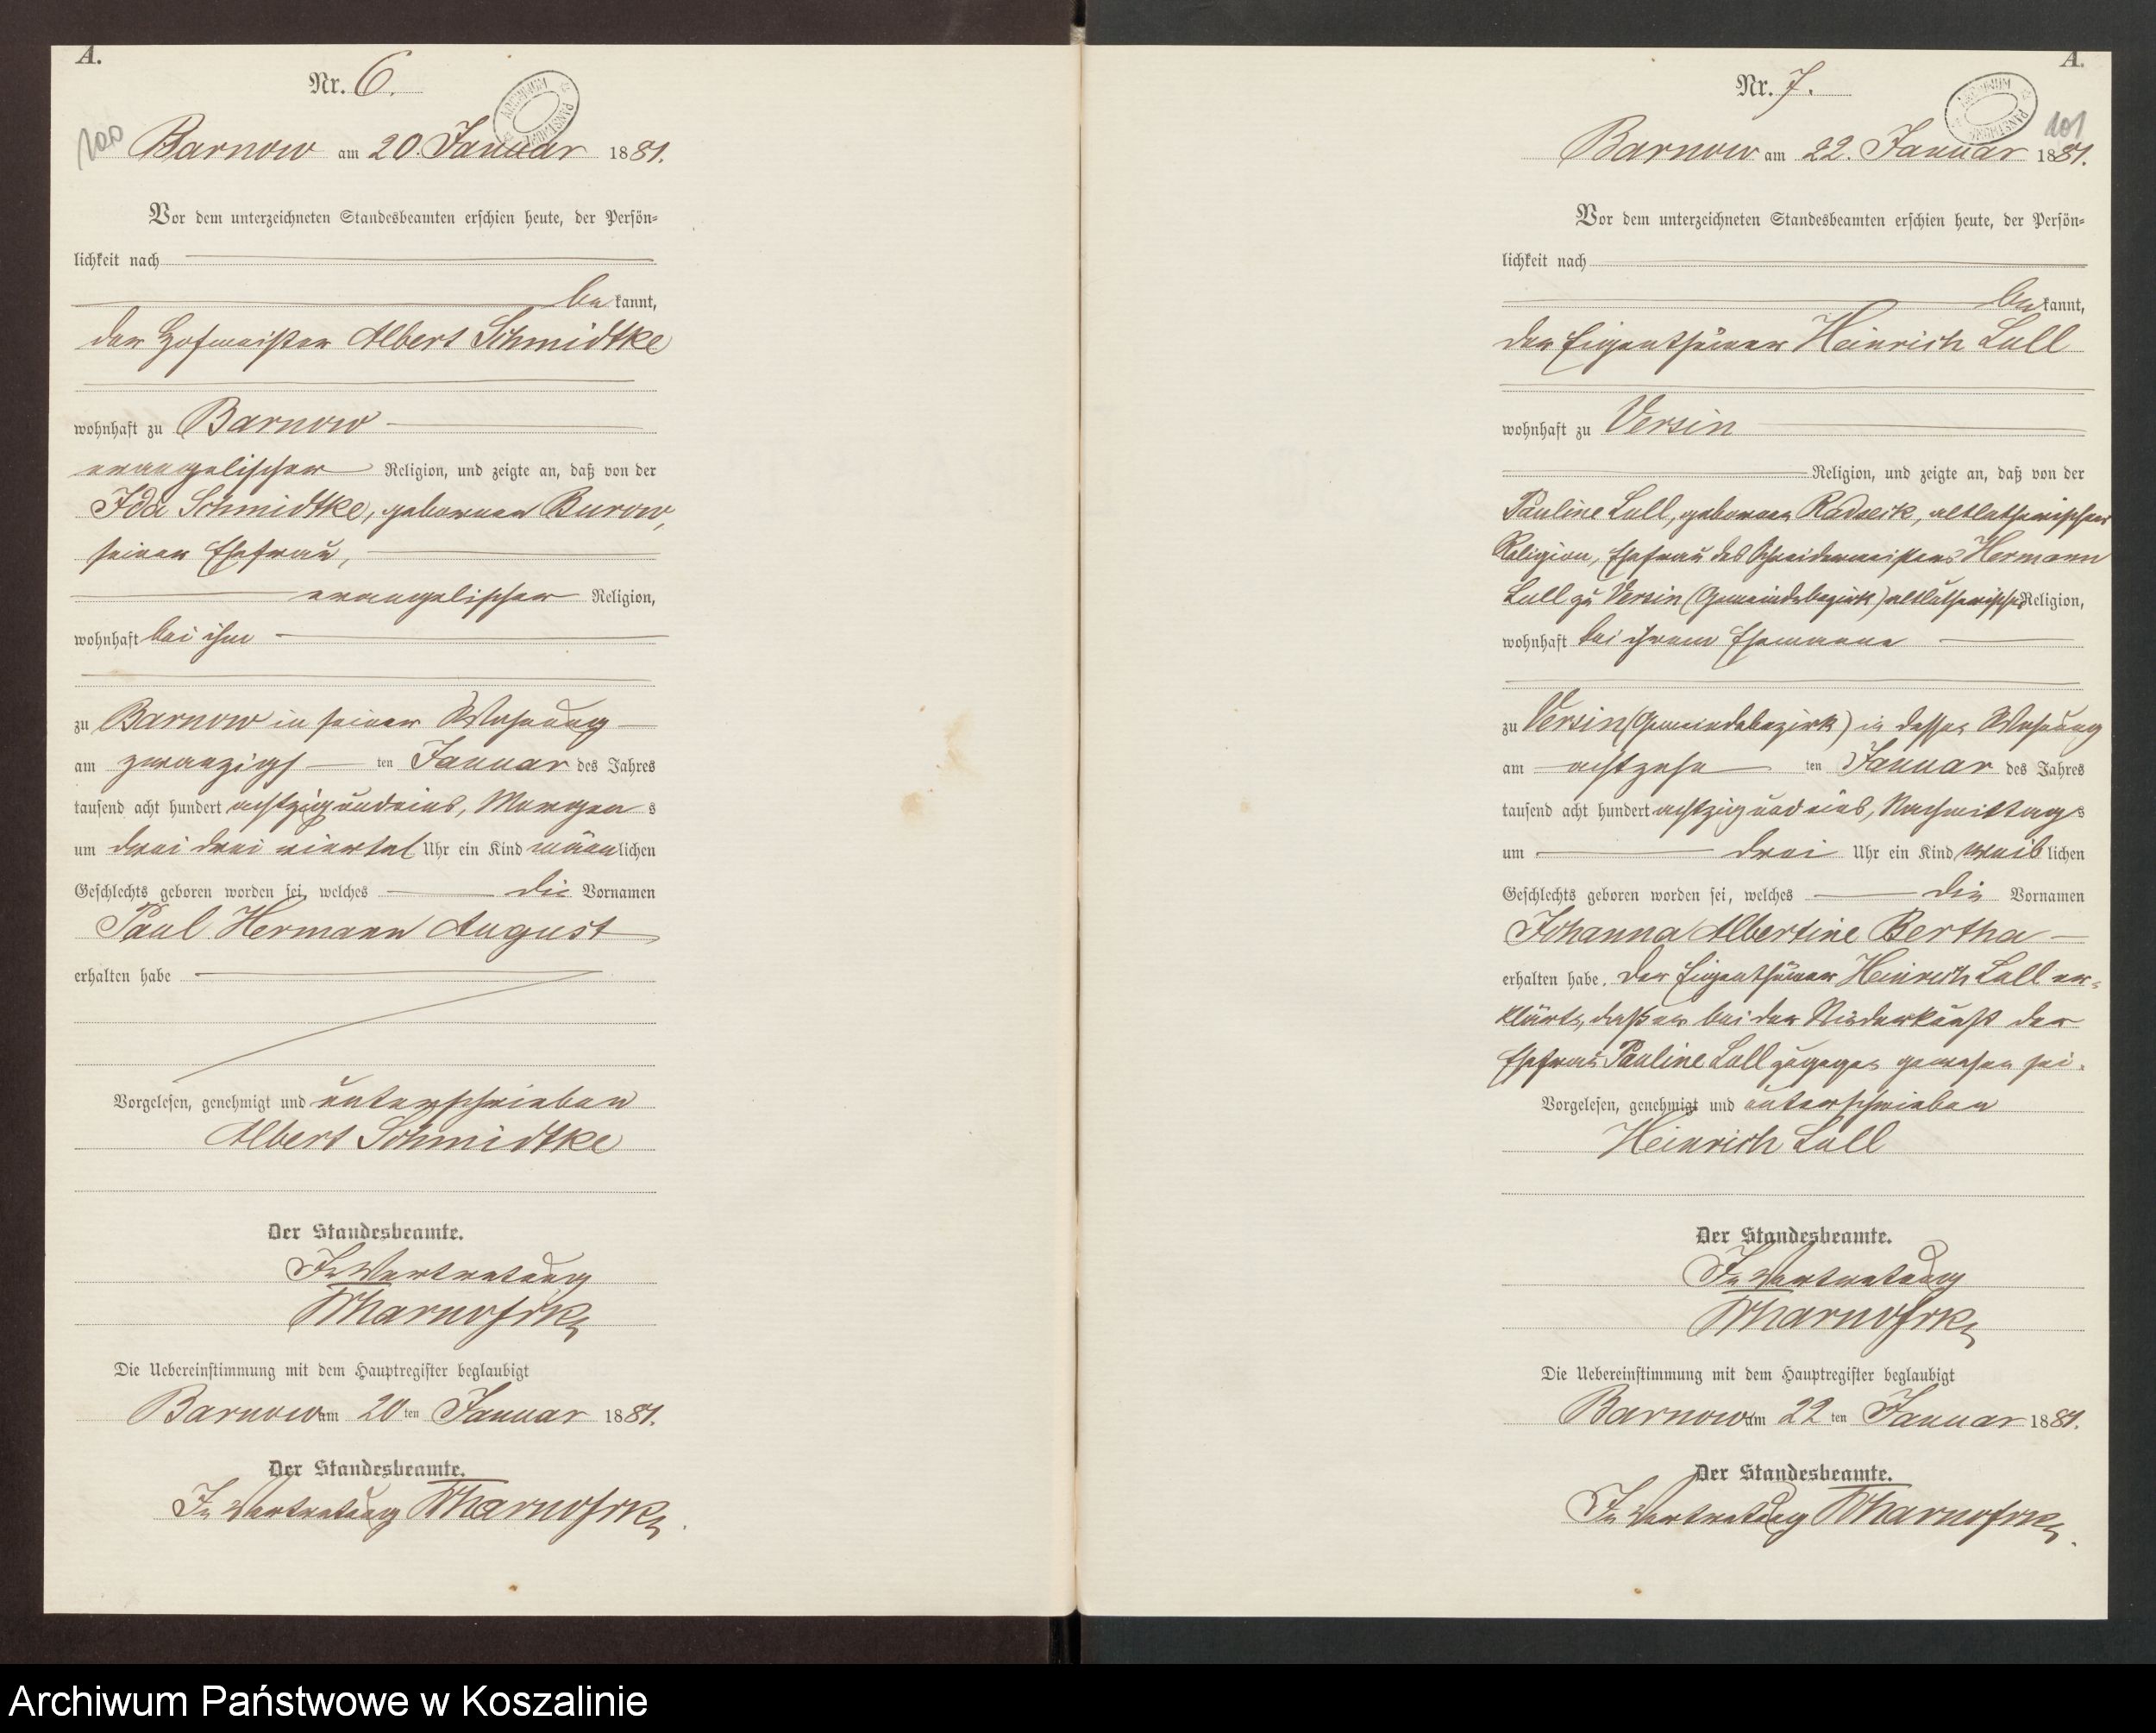 A.
Nr. 6.
ARCHIWUM PAŃSTWOWE
100
Barnow am 20. Januar 1881.
Vor dem unterzeichneten Standesbeamten erschien heute, der Persön-
lichkeit nach
be kannt,
der Hofmeister Albert Schmidtke
wohnhaft zu Barnow
evangelischer Religion, und zeigte an, daß von der
Ida Schmidtke, geborenen Burow,
seiner Ehefrau,
evangelischer Religion,
wohnhaft bei ihm
zu Barnow in seiner Wohnung
am zwanzigs ten Januar des Jahres
tausend acht hundert achtzig und eins, Morgen s
um drei drei viertel Uhr ein Kind männ lichen
Geschlechts geboren worden sei, welches die Vornamen
Paul Hermann August
erhalten habe
Vorgelesen, genehmigt und unterschrieben
Albert Schmidtke
Der Standesbeamte.
In Vertretung
Die Uebereinstimmung mit dem Hauptregister beglaubigt
Barnow am 20 ten Januar 1881.
Der Standesbeamte.
In Vertretung
A.
Nr. 7.
ARCHIWUM PAŃSTWOWE
101
Barnow am 22. Januar 1881.
Vor dem unterzeichneten Standesbeamten erschien heute, der Persön-
lichkeit nach
be kannt,
der Eigenthümer Heinrich Lull
wohnhaft zu Versin
Religion, und zeigte an, daß von der
Pauline Lull, geborenen altlutherischer
Religion, Ehefrau des Schneidermeisters Hermann
Lull zu Versin (Gemeindebezirk) altlutherischer Religion,
wohnhaft bei ihrem Ehemanne
zu Versin (Gemeindebezirk) in dessen Wohnung
am achtzehn ten Januar des Jahres
tausend acht hundert achtzig und eins, Nachmittag s
um drei Uhr ein Kind weib lichen
Geschlechts geboren worden sei, welches die Vornamen
Johanna Albertine Bertha
erhalten habe. Der Eigenthümer Heinrich Lull er-
klärte, daß er bei der Niederkunft der
Ehefrau Pauline Lull zugegen gewesen sei.
Vorgelesen, genehmigt und unterschrieben
Heinrich Lull
Der Standesbeamte.
In Vertretung
Die Uebereinstimmung mit dem Hauptregister beglaubigt
Barnow am 22 ten Januar 1881.
Der Standesbeamte.
In Vertretung
Archiwum Państwowe w Koszalinie